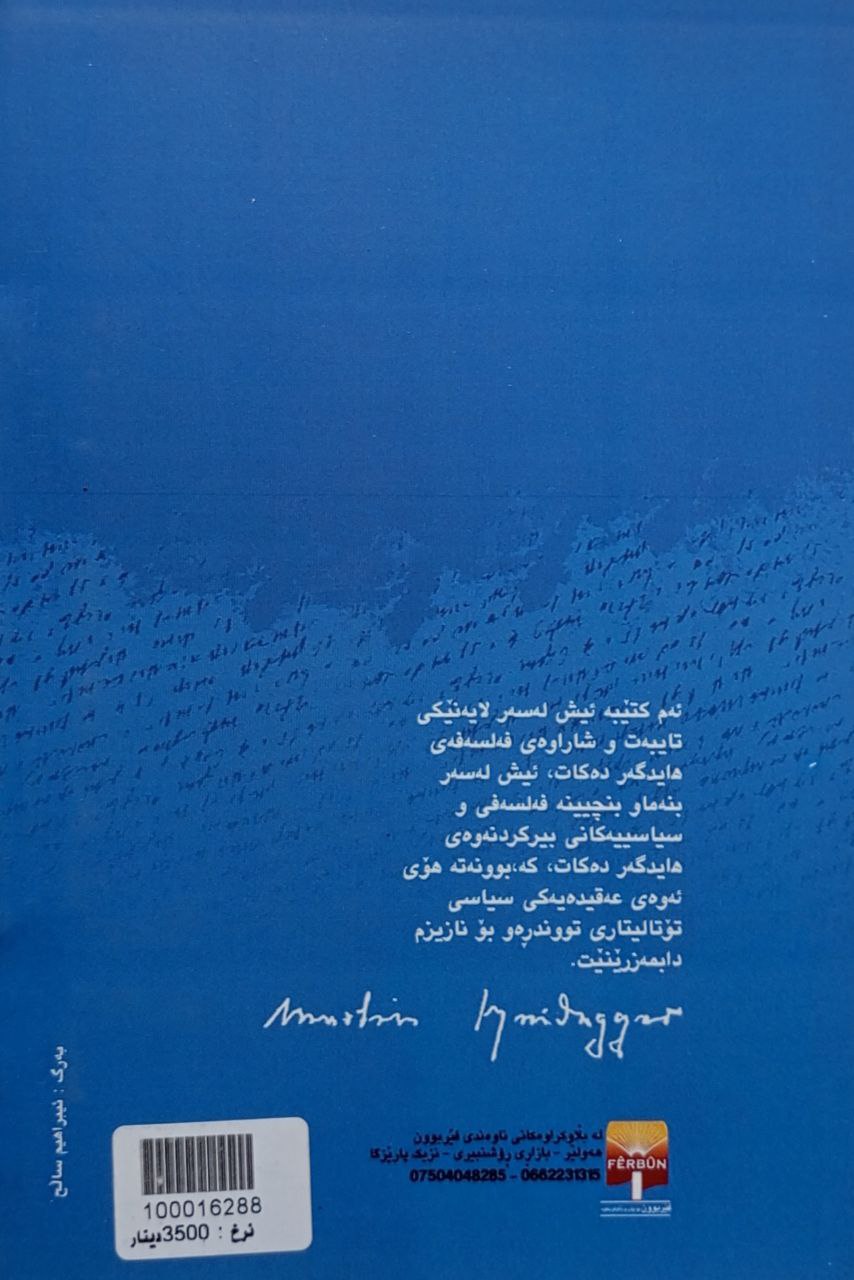 ئەم کتێبە ئیش لەسەر لایەنێکی
تایبەت و شاراوەی فەلسەفەی
هایدگەر دەکات، ئیش لەسەر
بنەماو بنچیینە فەلسەفی و
سیاسییەکانی بیرکردنەوەی
هایدگەر دەکات، کە،بوونەتە هۆی
ئەوەی عەقیدەیەکی سیاسی
تۆتالیتاری تووندڕەو بۆ نازیزم
دابمەزرێنێت.
Martin Heidegger
بەرگ : ئیبراهیم ساڵح
لە بڵاوکراوەکانی ناوەندی فێربوون
هەولێر - بازاڕی ڕۆشنبیری - نزیک پارێزگا
07504048285 - 0662231315
FÊRBÛN
فێربوون
100016288
نرخ : 3500دینار